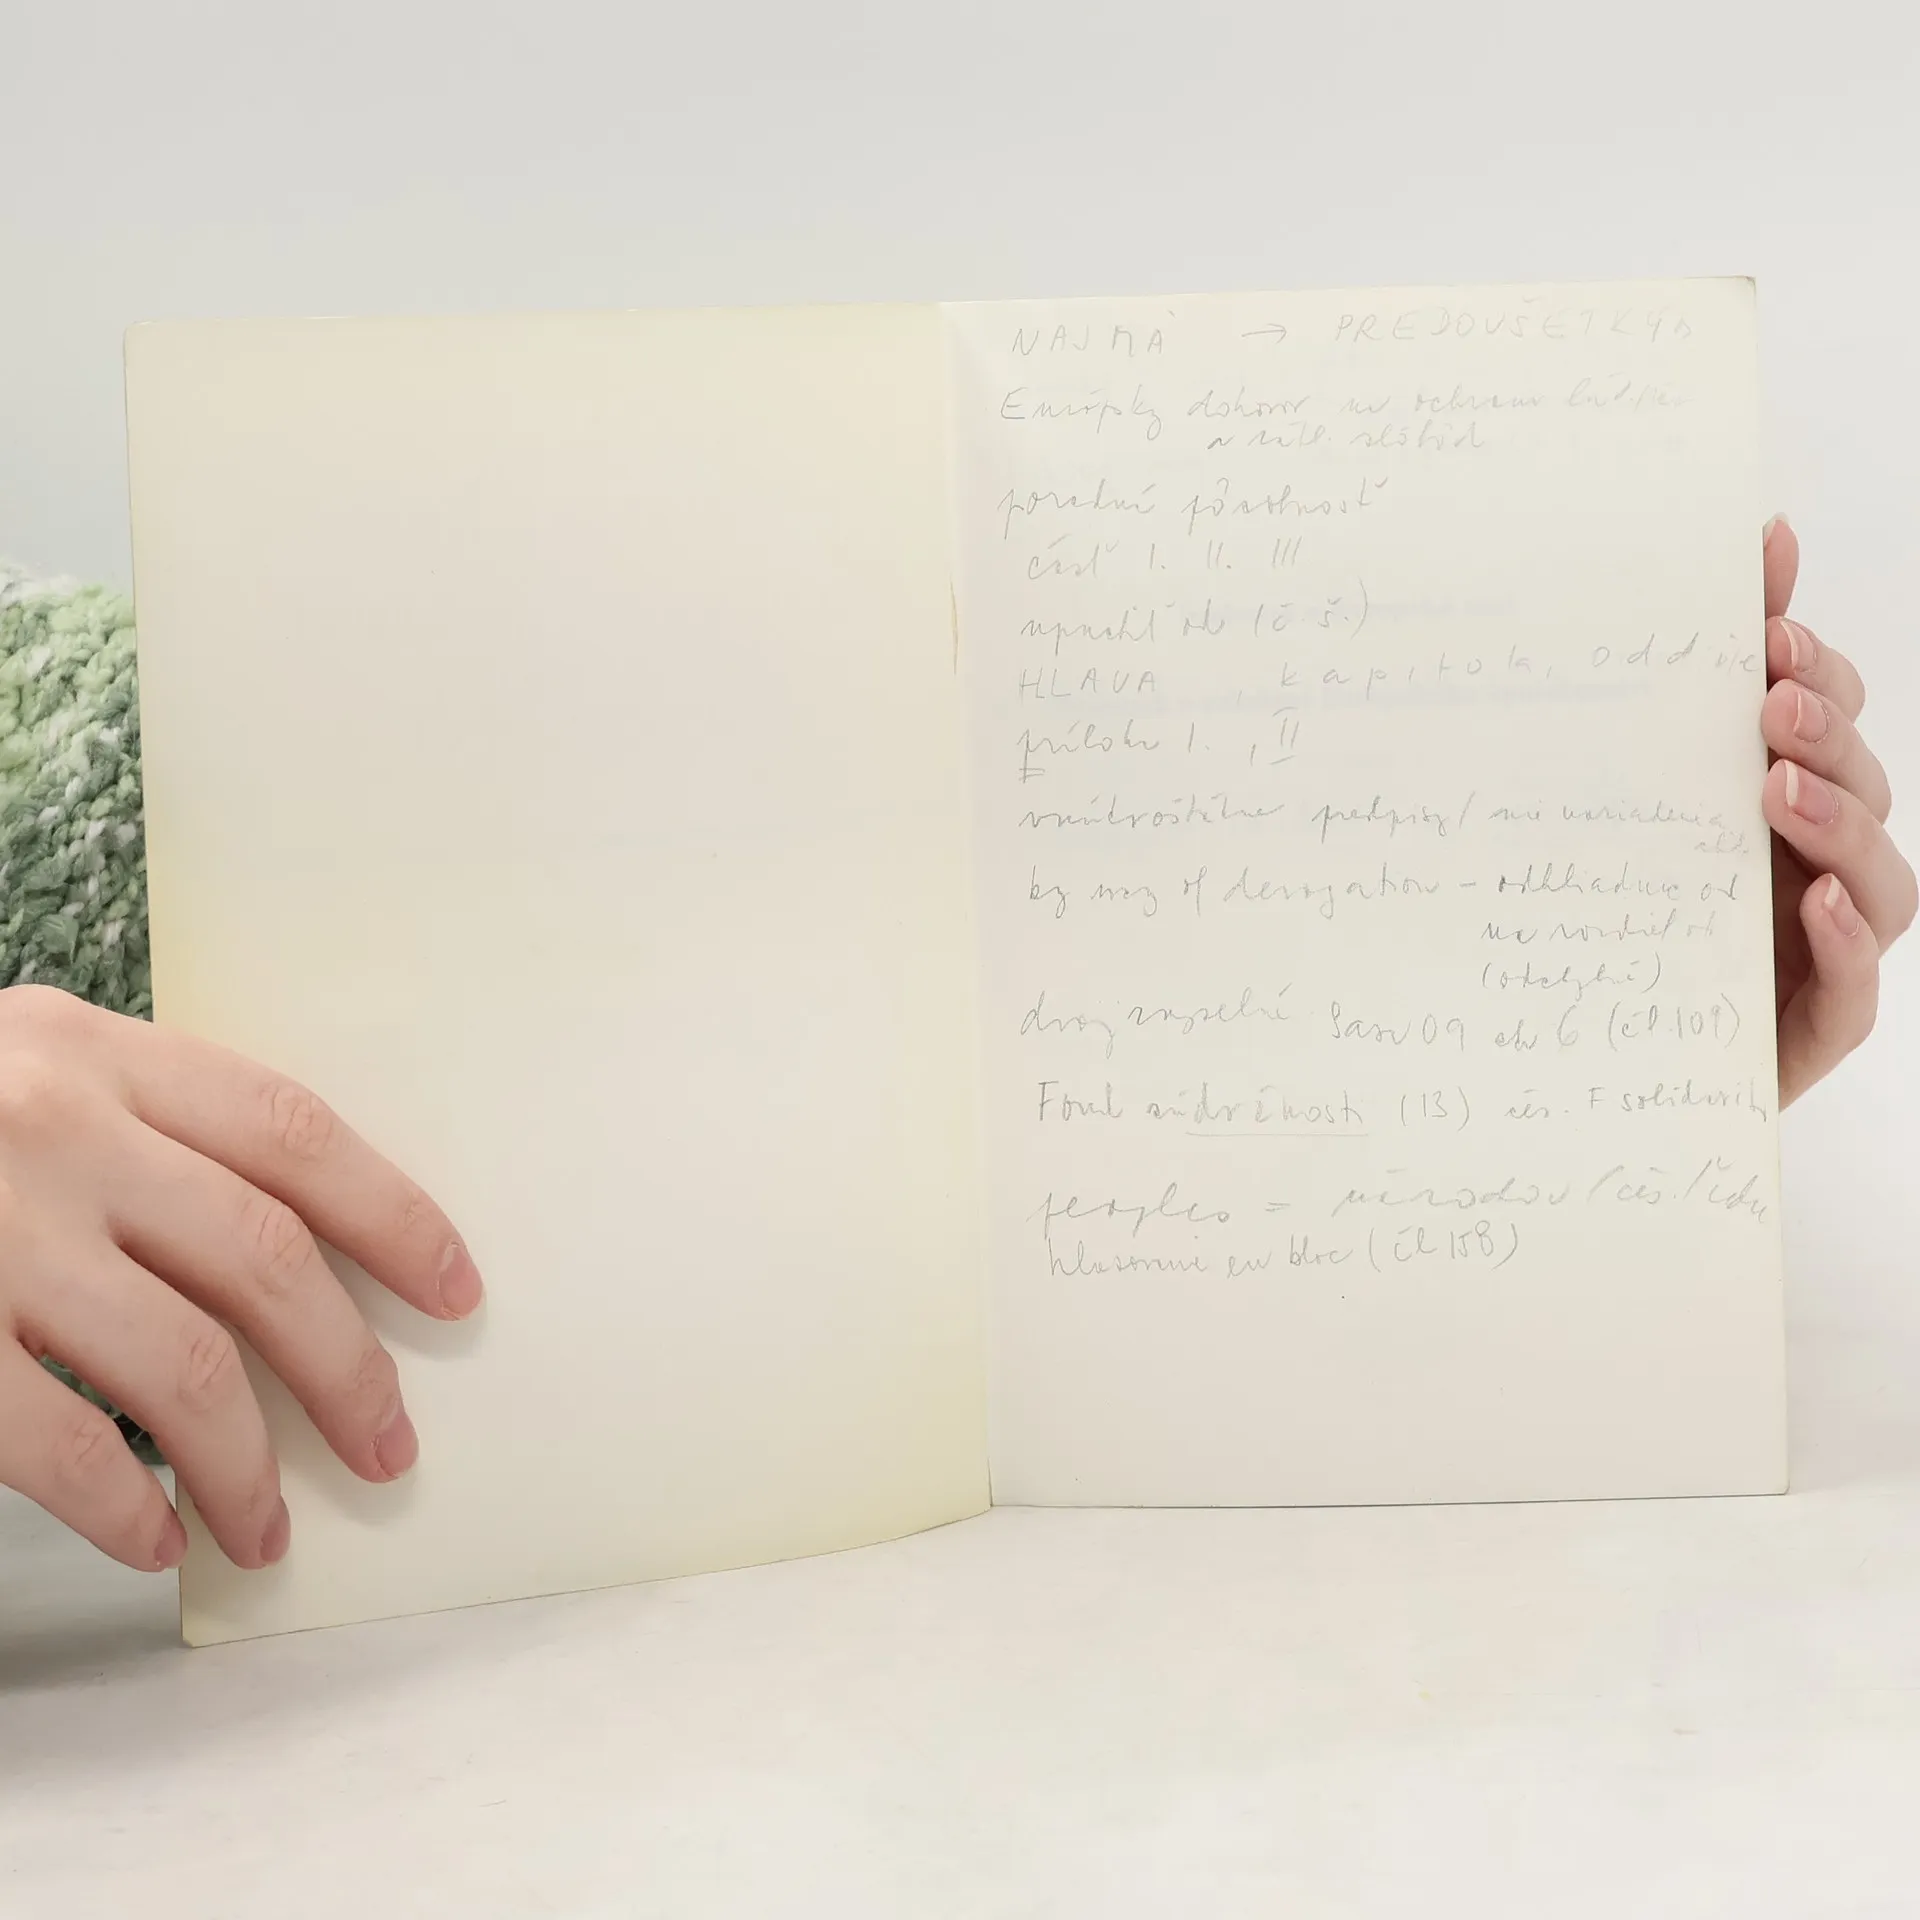 NAJMÄ → PREDOVŠETKÝM
Európsky dohovor na ochranu ľud.
a zákl. slobôd
poradná pôsobnosť
časť I. II. III
upustiť od (č. š.)
HLAVA , kapitola, oddiel
príloha I. , II
vnútroštátne predpisy / nie nariadenia
by way of derogation – odhliadnuc od
na rozdiel od
(odchylně)
dvoj 09 6 (čl. 109)
Fond súdržnosti (13) čes. F solidarity
peoples = národov /čes./
hlasovanie en bloc (čl 158)